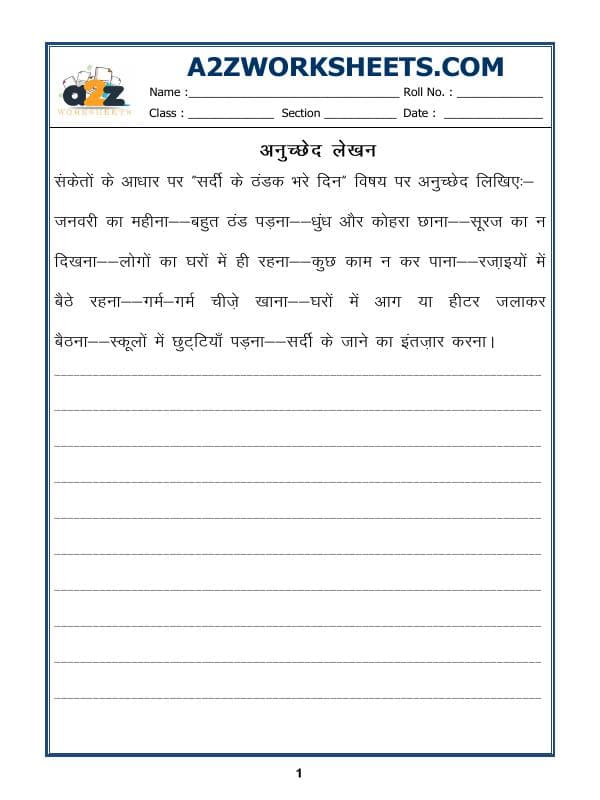 A2ZWORKSHEETS.COM
a2z
WORKSHEETS
Name :________________ Roll No. : ____________
Class : ____________ Section __________ Date : ____________
अनुच्छेद लेखन
संकेतों के आधार पर "सर्दी के ठंडक भरे दिन" विषय पर अनुच्छेद लिखिए:–
जनवरी का महीना––बहुत ठंड पड़ना––धुंध और कोहरा छाना––सूरज का न
दिखना––लोगों का घरों में ही रहना––कुछ काम न कर पाना––रज़ाइयों में
बैठे रहना––गर्म–गर्म चीज़े खाना––घरों में आग या हीटर जलाकर
बैठना––स्कूलों में छुट्टियाँ पड़ना––सर्दी के जाने का इंतज़ार करना।
1